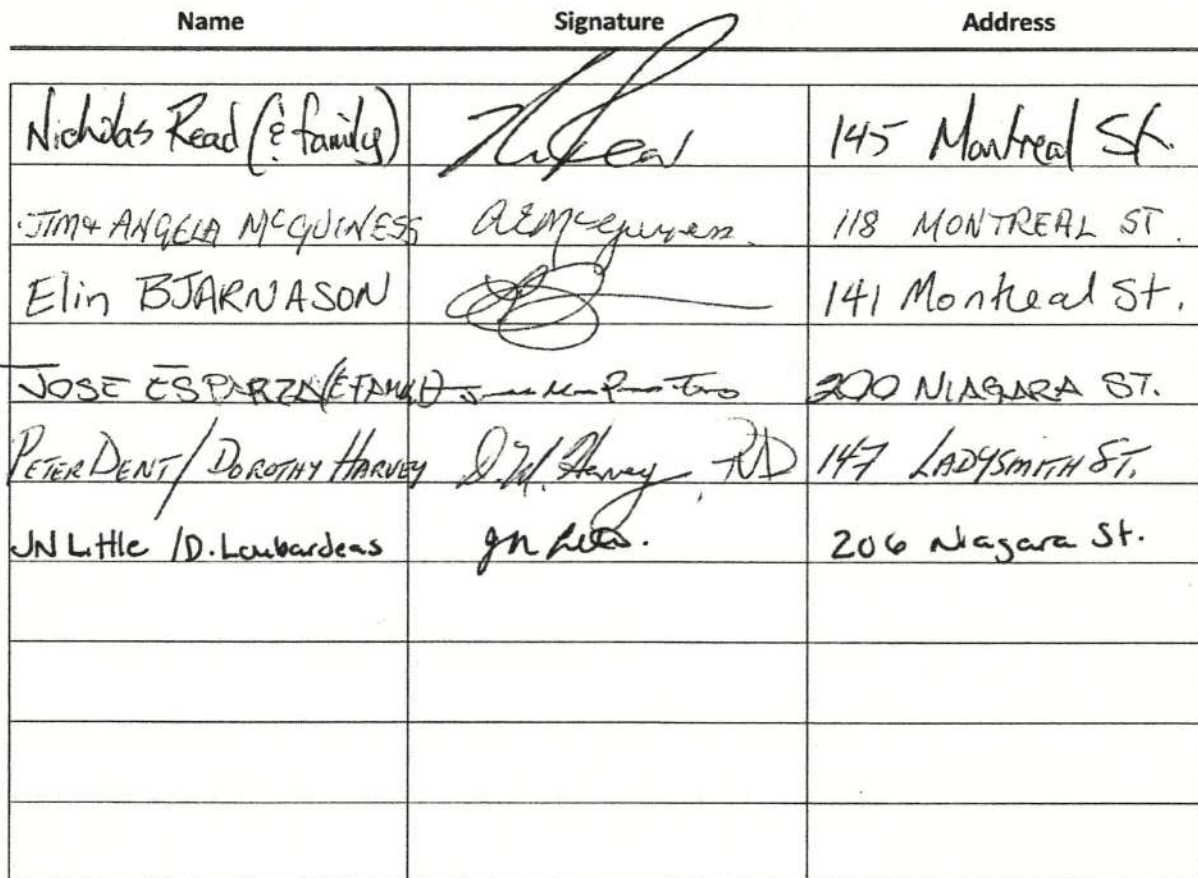 Name Signature Address
Nicholas Read (& family) 145 Montreal St.
JIM & ANGELA MCGUINESS AEMcGuiness 118 MONTREAL ST.
Elin BJARNASON 141 Montreal St.
JOSE ESPARZA (& FAMILY) 200 NIAGARA ST.
PETER DENT / DOROTHY HARVEY D.M. Harvey, RD 147 LADYSMITH ST.
JN Little / D. Loubardeas JN Little. 206 Niagara St.